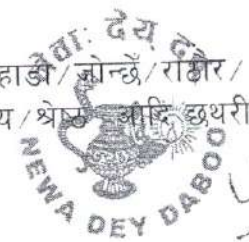 नेवा: देय् दबू
हाडा / जोन्छें / राठौर /
य / श्रेष्ठ आदि छथरी
NEWA DEY DABOO